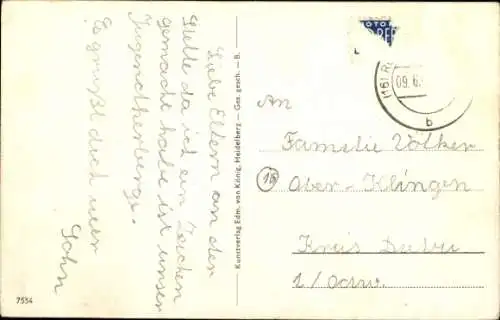 Liebe Eltern an der
Stelle da ich ein Zeichen
gemacht habe ist unser
Jugendherberge.
Es grüßt dich euer
Sohn
7554
Kunstverlag Edm. von König, Heidelberg — Ges. gesch. — B.
(16) R
09.6.
b
An
Familie Völker
16
Ober-Klingen
Kreis
i/Odw.